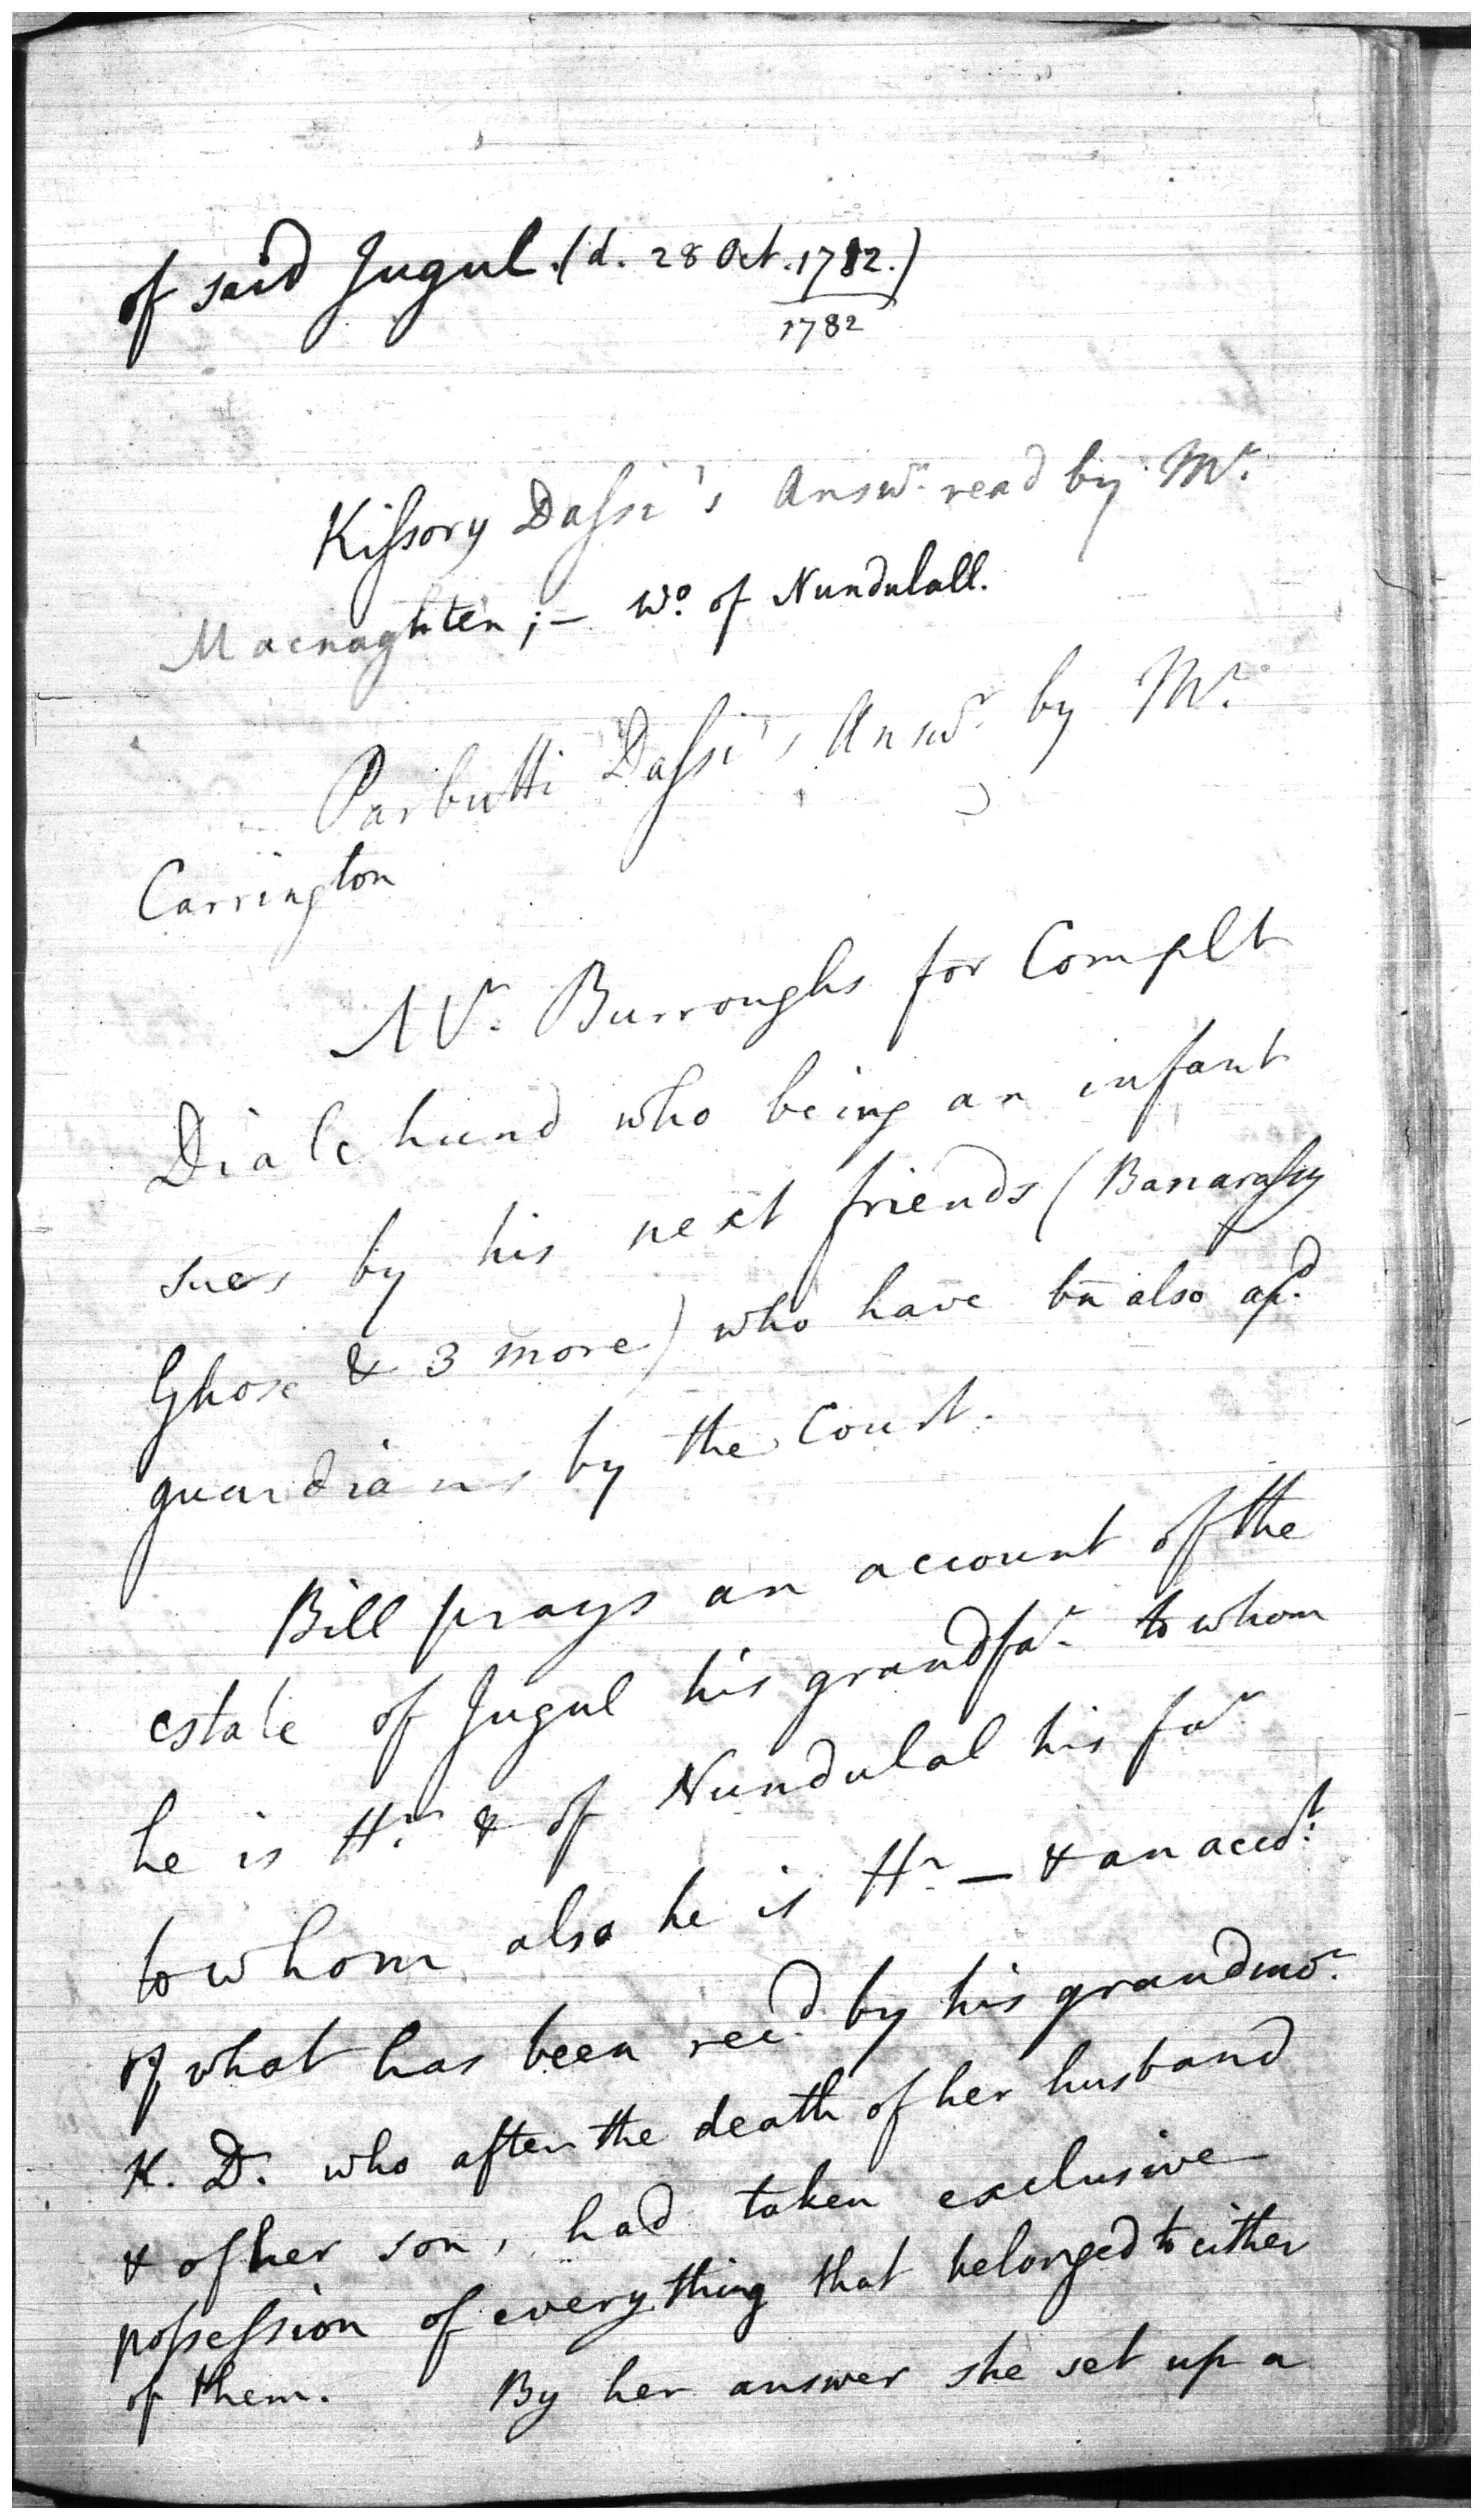 of said Jugul. (d. 28 Oct. 1782.)
1782
Kissory Dassi's Answr. read by Mr.
Macnaghten; — Wo. of Nundulall.
Parbutti Dassi's Answr. by Mr.
Carrington
Mr. Burroughs for Complt
Dialchund who being an infant
sues by his next friends (Banarassy
Ghose & 3 more) who have bn also apd.
guardians by the Court.
Bill prays an account of the
estate of Jugul his grandfar. to whom
he is Hr. & of Nundulal his far.
to whom also he is Hr. — & an accot.
of what has been recd. by his grandmor.
K. D. who after the death of her husband
& of her son, had taken exclusive
possession of everything that belonged to either
of them. By her answer she set up a